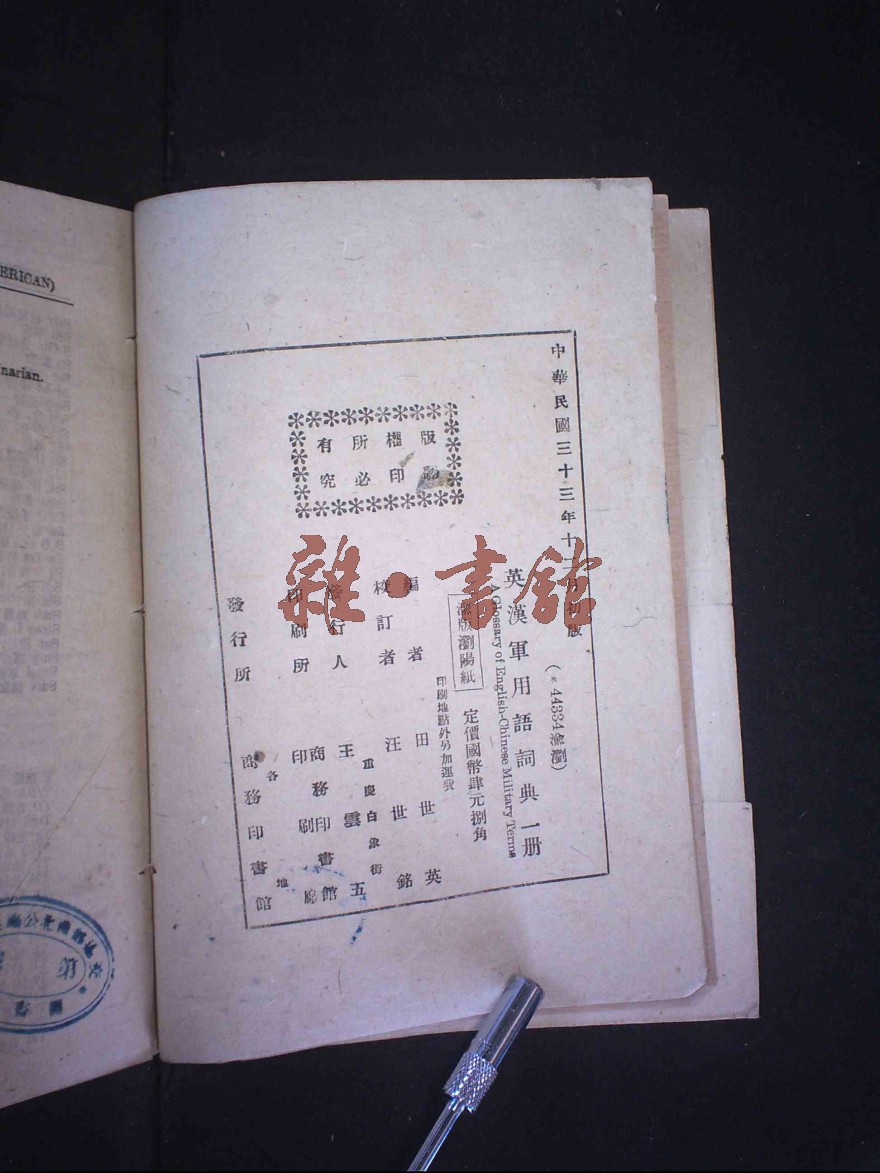 ERICAN)
narian.
中華民國三十三年十二月初版
(*44334渝瀏)
英漢軍用語詞典一册
A Glossary of English-Chinese Military Terms
渝版瀏陽紙
定價國幣肆元捌角
印刷地點外另加運費
版權所有
翻印必究
編者 田世英
校訂者 汪世銘
重慶白象街
發行人 王雲五
印刷所 商務印書館
印刷廠
各地
發行所 商務印書館
雜·書館
第